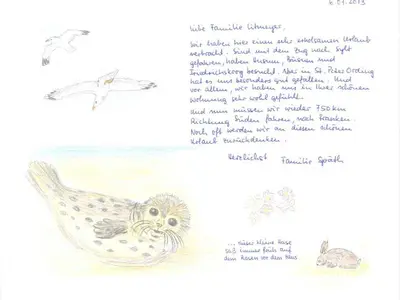 01.2013
Liebe Familie
wir haben hier einen sehr erholsamen Urlaub
verbracht. Sind mit dem Zug nach Sylt
gefahren, haben Husum, Büsum und
Friedrichskoog besucht. Aber in St. Peter Ording
hat es uns besonders gut gefallen. Und
vor allem, wir haben uns in Ihrer schönen
Wohnung sehr wohl gefühlt.
Und nun müssen wir wieder 750 km
Richtung Süden fahren, nach Franken.
Noch oft werden wir an diesen schönen
Urlaub zurückdenken.
Herzlichst Familie Späth
... dieser kleine Hase
saß immer früh auf
dem Rasen vor dem Haus